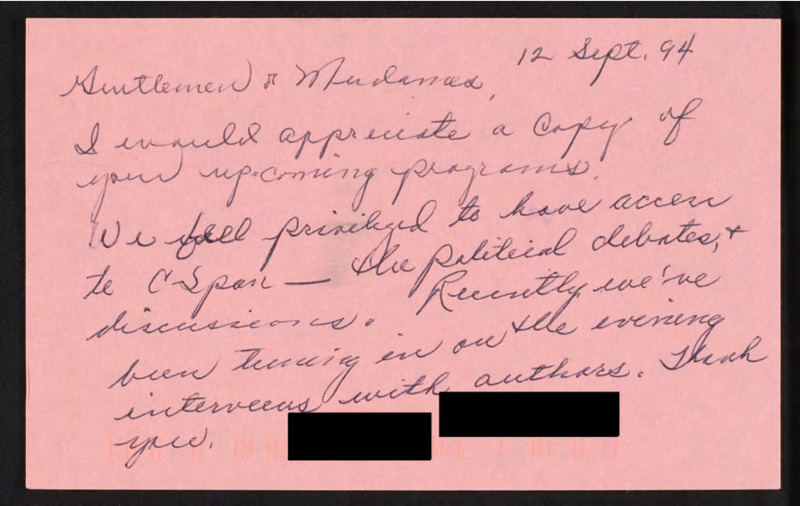 12 Sept. 94
Gentlemen or Mesdames,
I would appreciate a copy of
your up-coming programs.
We feel privileged to have access
to C-Span — the political debates, &
discussions. Recently we've
been tuning in on the evening
interviews with authors. Thank
you.